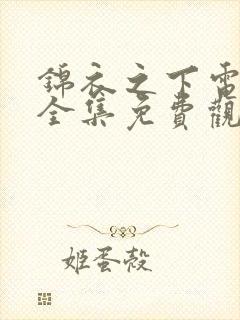 錦衣之下電
全集免費觀
姬蛋殼